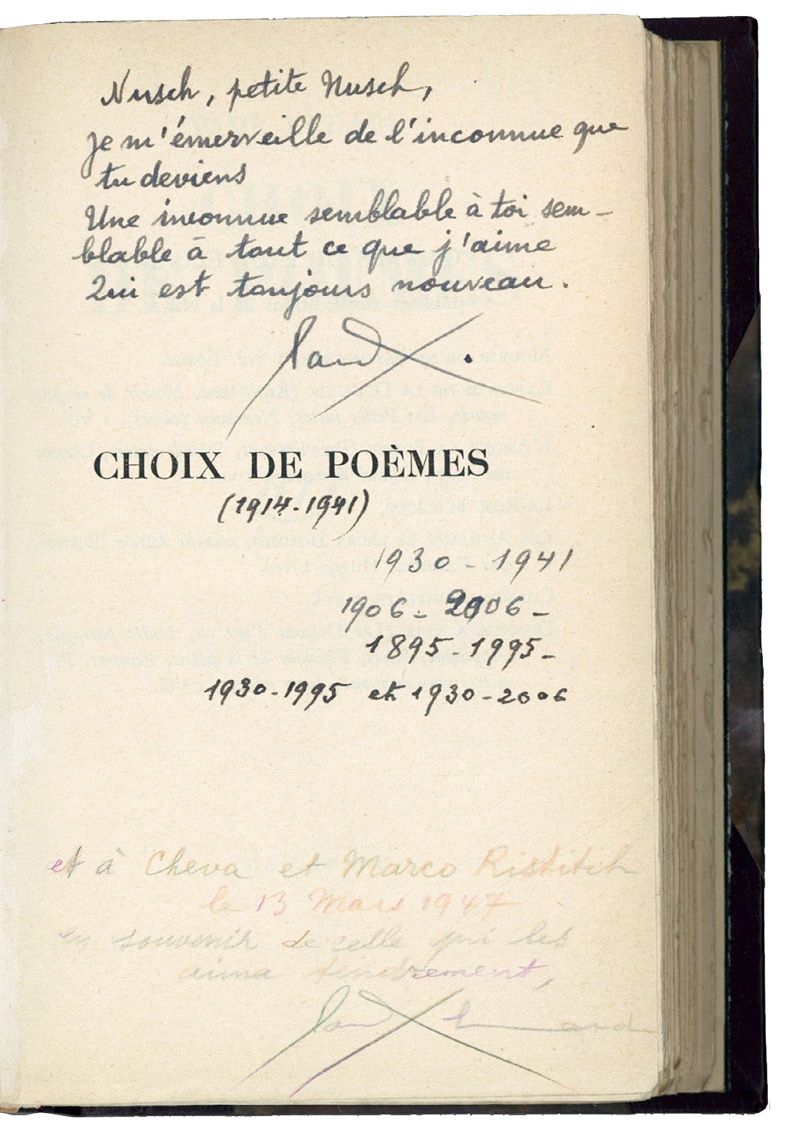 Nusch, petite Nusch,
Je m'émerveille de l'inconnue que
tu deviens
Une inconnue semblable à toi sem-
blable à tout ce que j'aime
Qui est toujours nouveau.
Paul
CHOIX DE POÈMES
(1914-1941)
1930-1941
1906-2006-
1895-1995-
1930-1995 et 1930-2006
et à Cheva et Marco Ristitch
le 13 Mars 1947
en souvenir de celle qui les
aima tendrement,
Paul Eluard